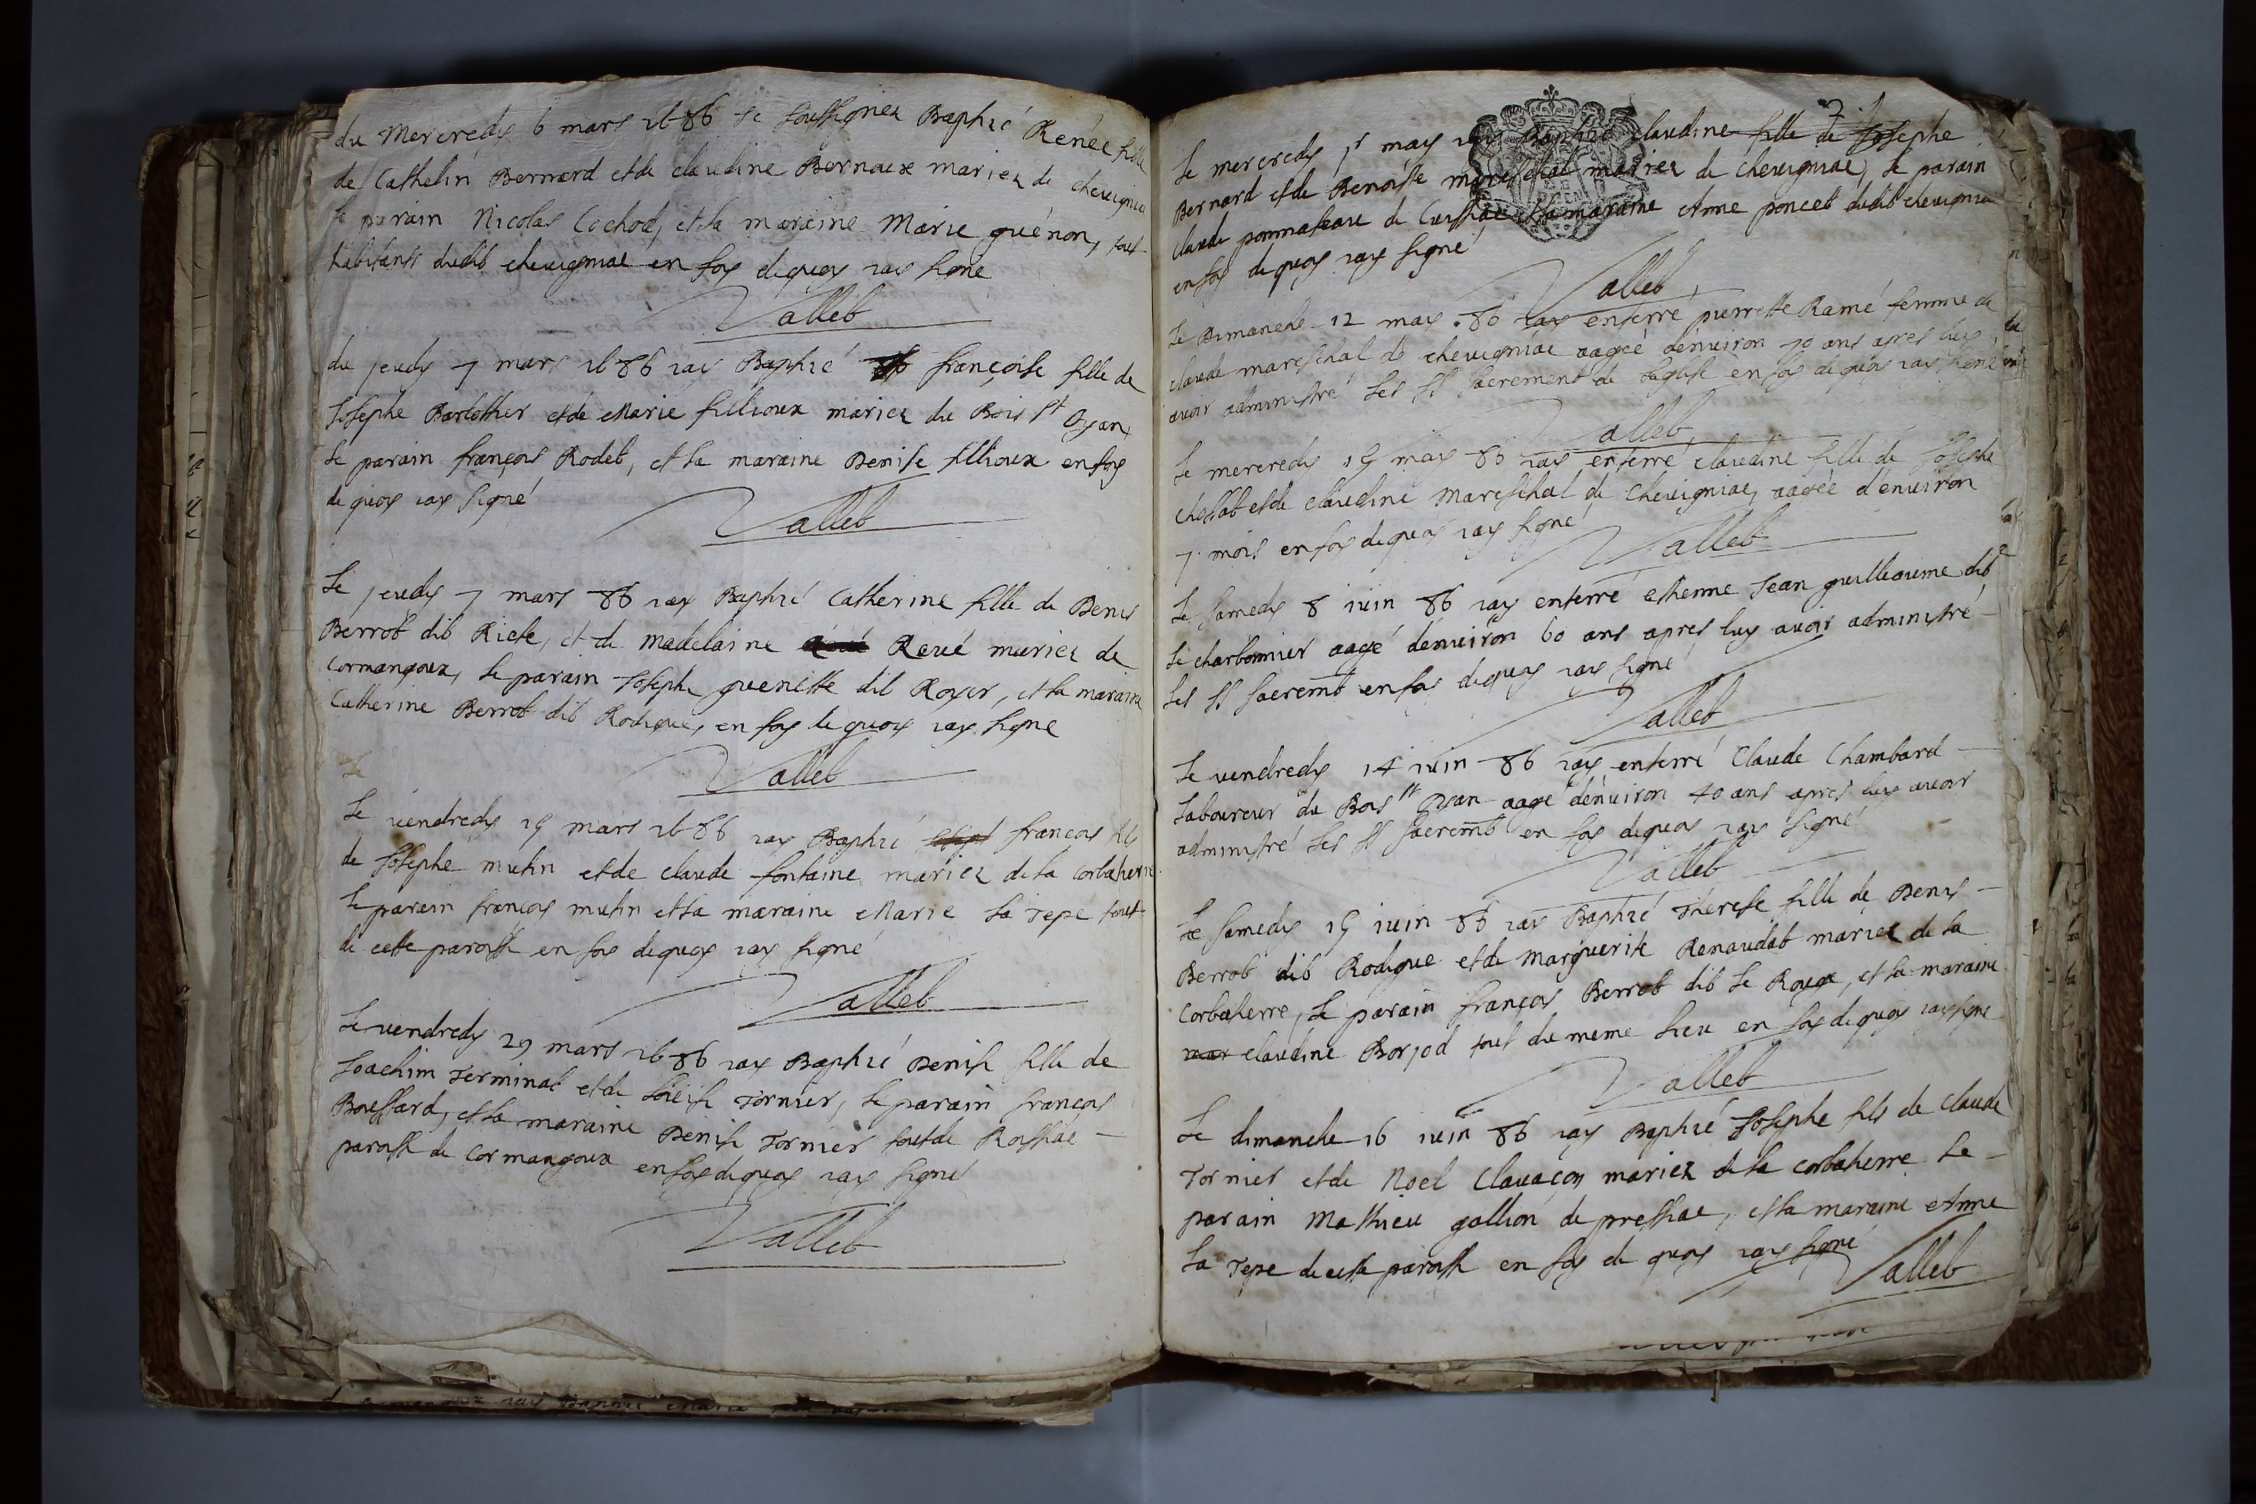 du Mercredy 6 mars 1686 Je soussignez Baptizé Renée fille
de Cathelin Bernard et de claudine Bernoux mariez de chevigniac
le parain Nicolas Cochod, et la maraine Marie guénon, tout
habitants dudit chevigniac en foy dequoy iay signé
Vallet
du jeudy 7 mars 1686 iay Baptizé françoise fille de
Josephe Barlether et de Marie fillioux mariez du Bois st Oyan,
le parain françois Rodet, et la maraine Denise fillioux en foy
de quoy iay signé
Vallet
Le jeudy 7 mars 86 iay Baptizé Catherine fille de Denis
Berrot dit Riche, et de Madelaine Revé mariez de
Cormangoux, le parain Josephe guenette dit Royer, et la maraine
Catherine Berrot dit Rodigue, en foy de quoy iay signé
Vallet
Le
Le vendredy 15 mars 1686 iay Baptizé françois fils
de Josephe mutin et de claude fontaine mariez de la Corbaterre
le parain françois mutin et la maraine Marie la Tepe tout
de cette paroisse en foy dequoy iay signé
Vallet
Le vendredy 29 mars 1686 iay Baptizé Denise fille de
Joachim Terminat et de Tornier, le parain françois
Boussard, et la maraine Denise Tornier tout de
paroisse de Cormangoux en foy dequoy iay signé
Vallet
7
Le mercredy 1r may iay Baptizé claudine fille de Josephe
Bernard et de Benoiste mareschal mariez de chevigniac, le parain
claude pommateau de Cuissiat et la maraine Anne poncet dudit chevigniac
en foy de quoy iay signé
Vallet
Le Dimanche 12 may 86 iay enterré pierrette Ramé femme de
claude mareschal de chevigniac aagée denviron 70 ans apres luy
avoir administré les ss sacrement de leglise en foy dequoy iay signé
Vallet
Le mercredy 15 may 86 iay enterré claudine fille de Josephe
Chossat et de claudine Mareschal de Chevigniac, aagée d'environ
7 mois en foy dequoy iay signé
Vallet
Le samedy 8 iuin 86 iay enterré estienne Jean guilleaume dit
le charbonnier aagé denviron 60 ans apres luy avoir administré
les ss sacremt en foy dequoy iay signé
Vallet
Le vendredy 14 iuin 86 iay enterré Claude Chambard
laboureur du Bois st Oyan aagé denviron 40 ans apres luy avoir
administré les ss sacremt en foy dequoy iay signé
Vallet
Le samedy 15 iuin 86 iay Baptizé Therese fille de Denis
Berrot dit Rodigue et de Marguerite Renaudat mariez de la
Corbaterre, le parain françois Berrot dit le Roux, et la maraine
claudine Borjod tout du meme lieu en foy dequoy iay signé
Vallet
Le dimanche 16 iuin 86 iay Baptizé Josephe fils de claude
Tornier et de Noel Clavaçon mariez de la corbaterre le
parain Mathieu gallion de pressiat, et la maraine Anne
la Tepe de cette paroisse en foy de quoy iay signé
Vallet